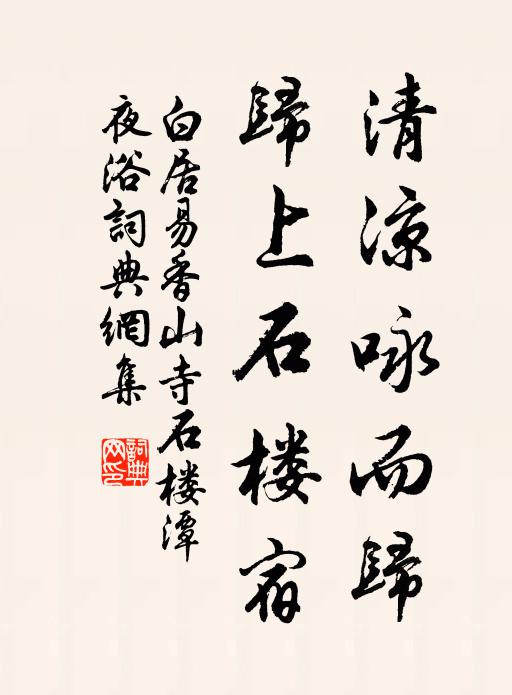 清涼咏而歸
歸上石楼宿
白居易香山寺石楼潭
夜浴詞典網集
詞典
网印